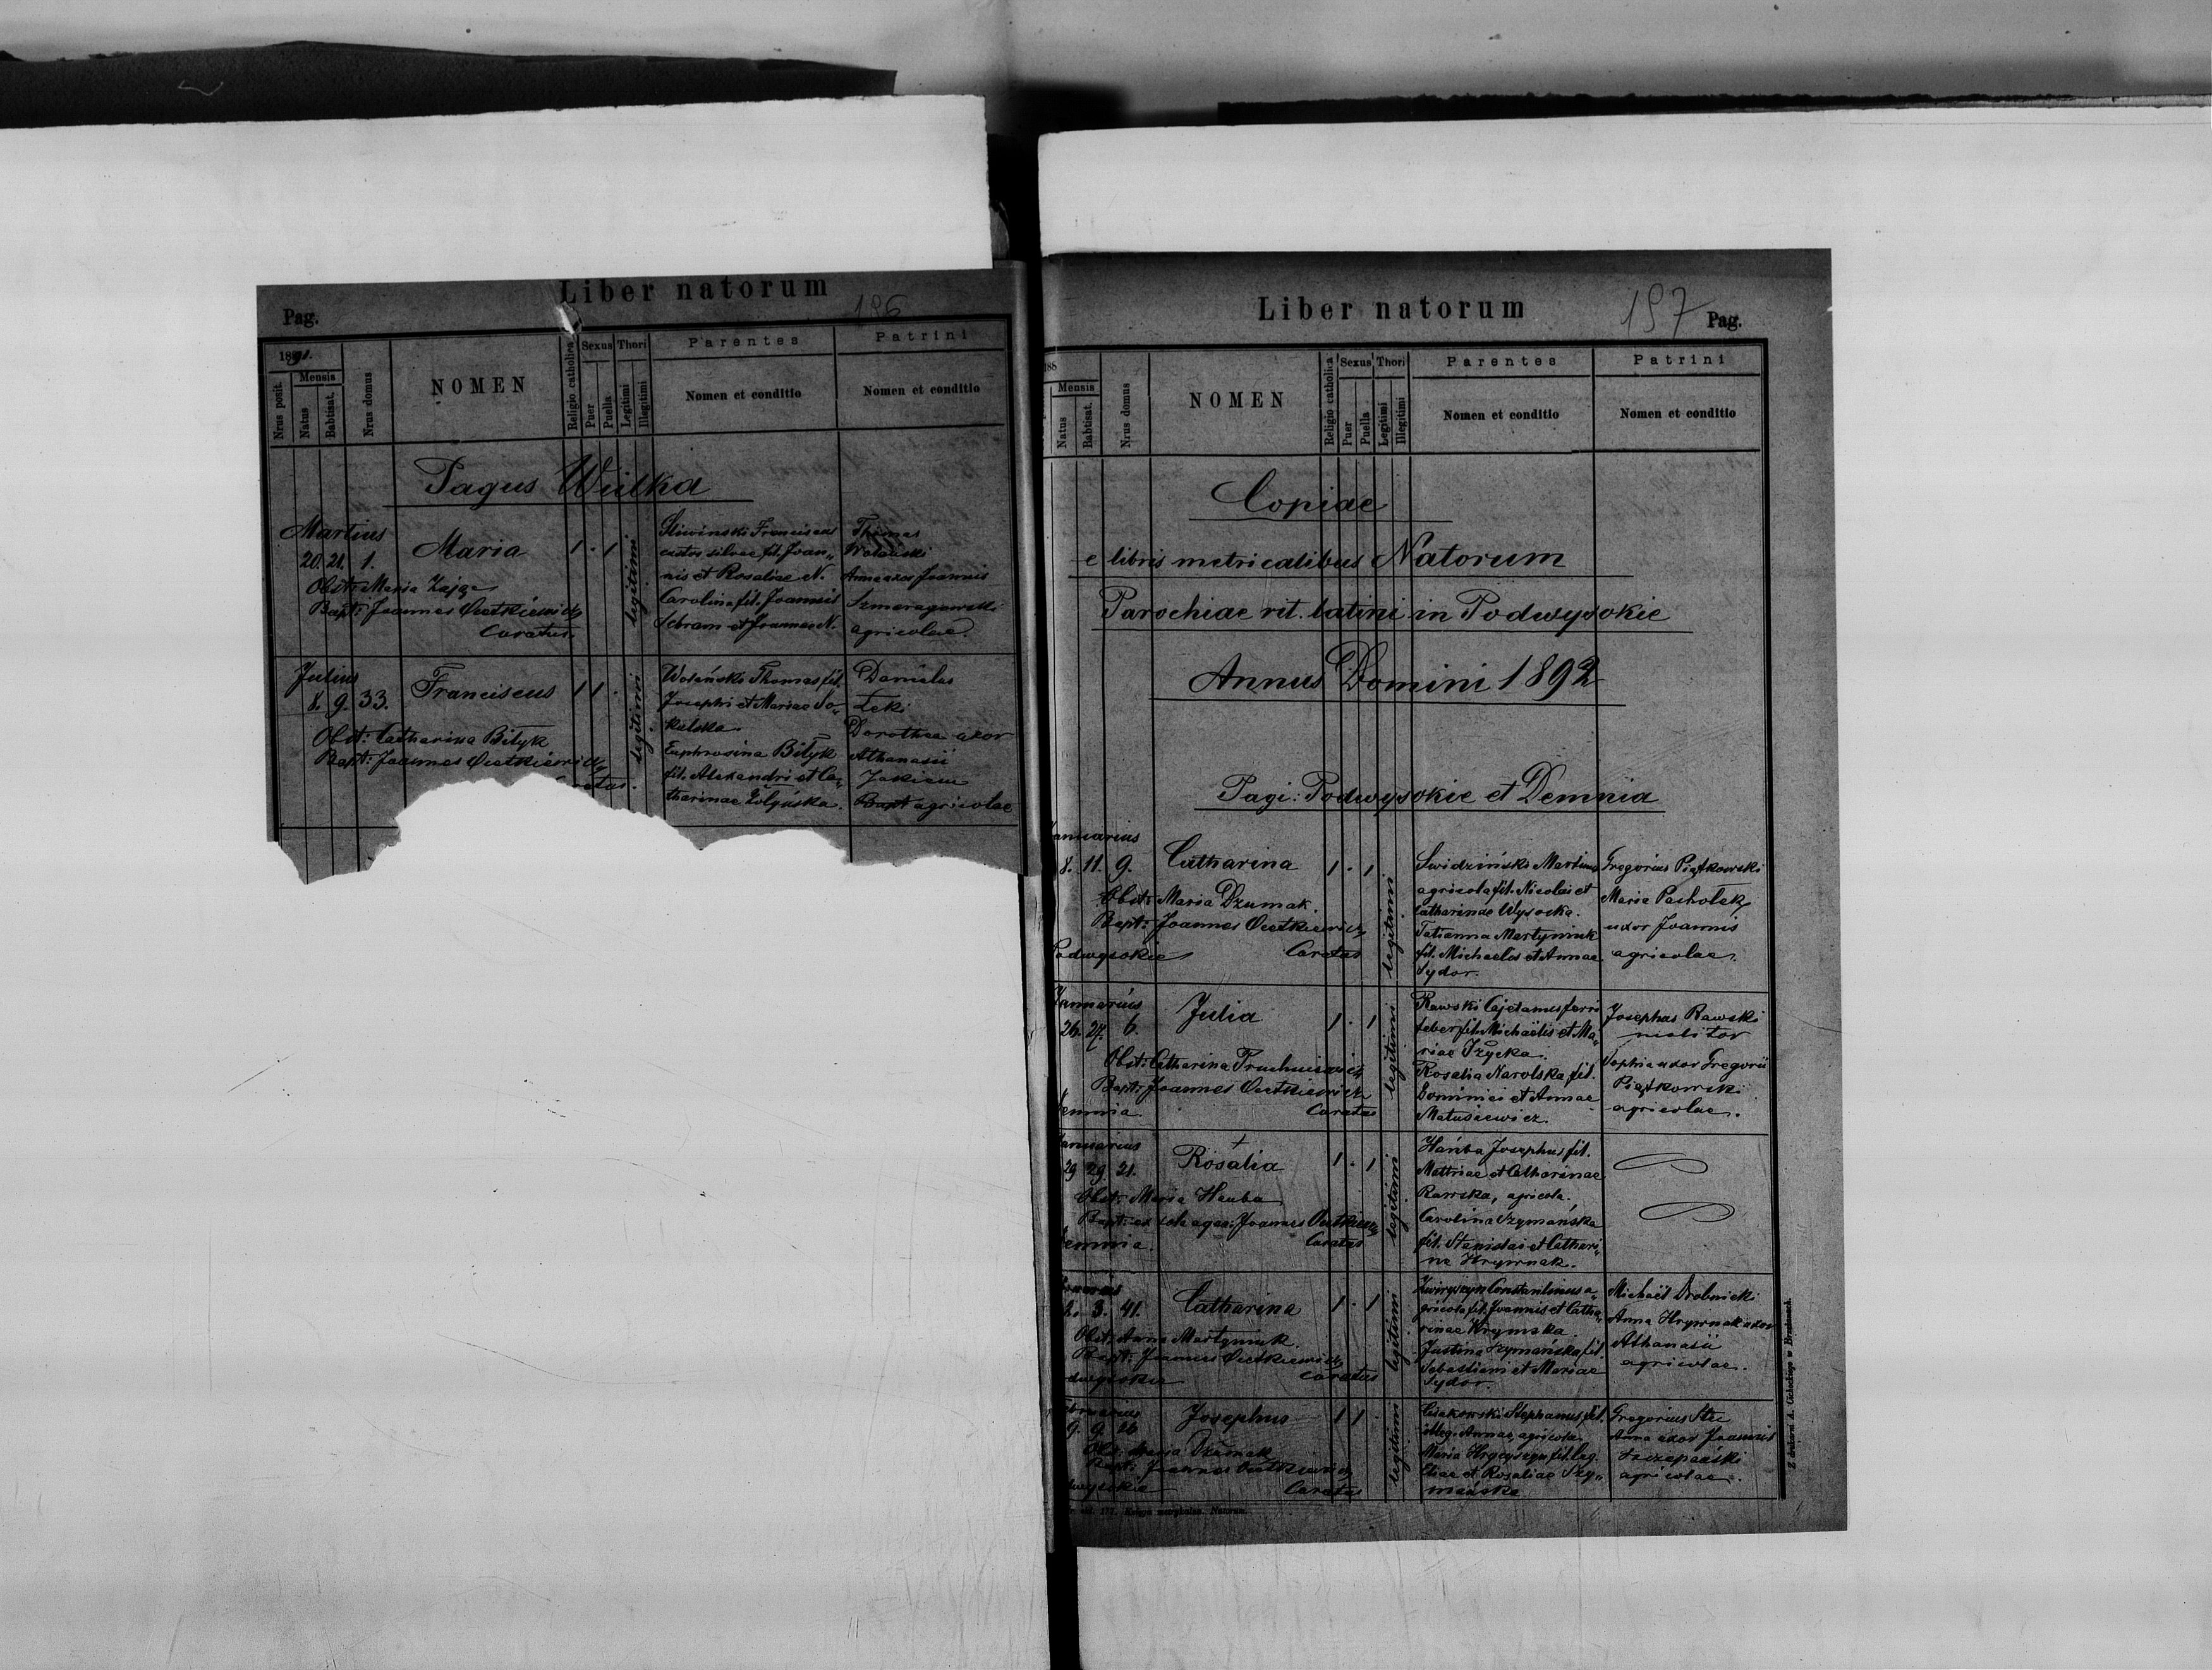 Liber natorum
196
Pag.
1891.
Nrus posit.
Mensis
Natus
Babtisat.
Nrus domus
NOMEN
Religio catholica
Sexus
Puer
Puella
Thori
Legitimi
Illegitimi
Parentes
Nomen et conditio
Patrini
Nomen et conditio
Pagus Wulka
Martius
20. 21. 1.
Maria
1 . 1
legitimi
Obst: Maria Zając
Bapt: Joannes Oćetkiewicz
Curatus.
Śliwinski Franciscus
custos silvae fil. Joan„
nis et Rosaliae N.
Carolina fil. Joannis
Schram et Joannae N.
Thomas
Wolański
Anna uxor Joannis
Szmaragowski
agricolae.
Julius
8. 9. 33.
Franciscus
1 1 .
legitimi
Obst: Catharina Bilyk
Bapt: Joannes Oćetkiewicz
Wolański Thomas fil.
Josephi et Mariae So„
kalska.
Euphrosina Bilyk
fil. Alexandri et Ca„
tharinae
Daniel
Dorothea uxor
Athanasii
Jakiem
agricolae
Liber natorum
197
Pag.
188
Mensis
Natus
Babtisat.
Nrus domus
NOMEN
Religio catholica
Sexus
Puer
Puella
Thori
Legitimi
Illegitimi
Parentes
Nomen et conditio
Patrini
Nomen et conditio
Copiae
e libris metricalibus Natorum
Parochiae rit. latini in Podwysokie
Annus Domini 1892
Pagi: Podwysokie et Demnia
Januarius
8. 11. 9.
Catharina
1 . 1
legitimi
Obst: Maria Dzumak.
Bapt: Joannes Oćetkiewicz
Podwysokie
Curatus
Swidziński Martinus
agricola fil. Nicolai et
Catharinae Wysocka.
Tatianna Martyniuk
fil. Michaelis et Annae
Sydor.
Gregorius Piątkowski
Maria Pacholek
uxor Joannis
agricolae.
Januarius
26. 27. 6.
Julia
1 . 1
legitimi
Obst: Catharina
Bapt: Joannes Oćetkiewicz
Demnia
Curatus
Rawski Cajetanus ferri
faber fil. Michaëlis et Ma„
riae Irzycka.
Rosalia Narolska fil.
Dominici et Annae
Matusiewicz.
Josephus Rawski
molitor
Sophia uxor Gregorii
Piątkowski
agricolae.
Januarius
29 29. 21.
Rosalia
1 . 1
legitimi
Obst: Maria Hanba
Bapt: ex sola aqua: Joannes
Demnia.
Curatus
Hańba Josephus fil.
Mathiae et Catharinae
Rawska, agricola.
Carolina Szymańska
fil. Stanislai et Cathari„
na Hrywnak.
2. 3. 41.
Catharina
1 . 1
legitimi
Obst: Anna Martyniuk.
Bapt: Joannes Oćetkiewicz
Curatus
Constantinus a„
gricola fil. Joannis et Catha„
rinae Krymska.
Justina Szymańska fil.
Sebastiani et Mariae
Sydor.
Michaël Drobnicki
Anna Hrywnak uxor
Athanasii
agricolae.
Februarius
9. 9. 26
Josephus
1 1 .
legitimi
Obst: Maria Dzumak
Bapt: Joannes Oćetkiewicz
Curatus
Stephanus fil.
illeg. Annae, agricola.
Maria Hrycyszyn fil. leg.
Eliae et Rosaliae Szy„
mańska
Gregorius Stec
Anna uxor Joannis
Szczepański
agricolae.